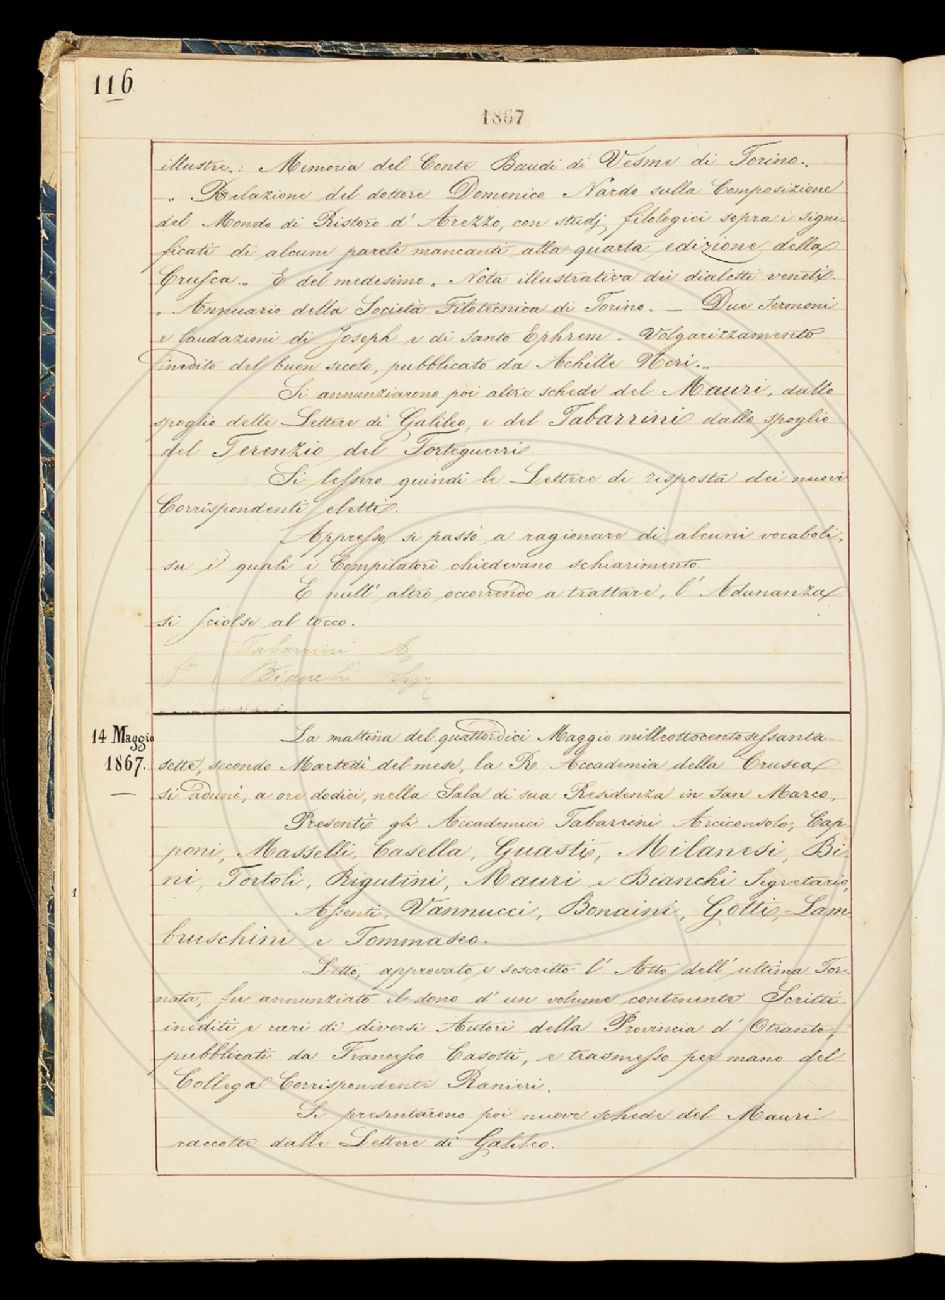 116
1867
illustre„ : Memoria del Conte Baudi di Vesme di Torino„.
„ Relazione del dottore Domenico Nardo sulla Composizione
del Mondo di Ristoro d' Arezzo, con studj filologici sopra i signi-
ficati di alcune parole mancanti alla quarta edizione della
Crusca„ E del medesimo „ Nota illustrativa dei dialetti veneti„.
„ Annuario della Società Filotecnica di Torino. — Due Sermoni
e laudazioni di Joseph e di Santo Ephrem „ Volgarizzamento
inedito del buon secolo, pubblicato da Achille Neri„.
Si annunziarono poi altre schede del Mauri, dallo
spoglio delle Lettere di Galileo, e del Tabarrini dallo spoglio
del Terenzio del Forteguerri.
Si lessero quindi le Lettere di risposta dei nuovi
Corrispondenti eletti.
Appresso si passò a ragionare di alcuni vocaboli,
su i quali i Compilatori chiedevano schiarimento.
E null' altro occorrendo a trattare, l' Adunanza
si sciolse al tocco.
Tabarrini
Bianchi
14 Maggio
1867.
La mattina del quattordici Maggio milleottocentosessanta-
sette, secondo Martedì del mese, la R. Accademia della Crusca
si adunò, a ore dodici, nella Sala di sua Residenza in San Marco.
Presenti gli Accademici Tabarrini Arciconsolo, Cap-
poni, Masselli, Casella, Guasti, Milanesi, Bi-
ni, Tortoli, Rigutini, Mauri e Bianchi Segretario,
Assenti, Vannucci, Bonaini, Gotti, Lam-
bruschini e Tommaseo.
Letto, approvato e soscritto l' Atto dell' ultima Tor-
nata, fu annunziato il dono d' un volume contenente Scritti
inediti e rari di diversi Autori della Provincia d' Otranto,
pubblicati da Francesco Casotti, e trasmesso per mano del
Collega Corrispondente Ranieri.
Si presentarono poi nuove schede del Mauri
raccolte dalle Lettere di Galileo.